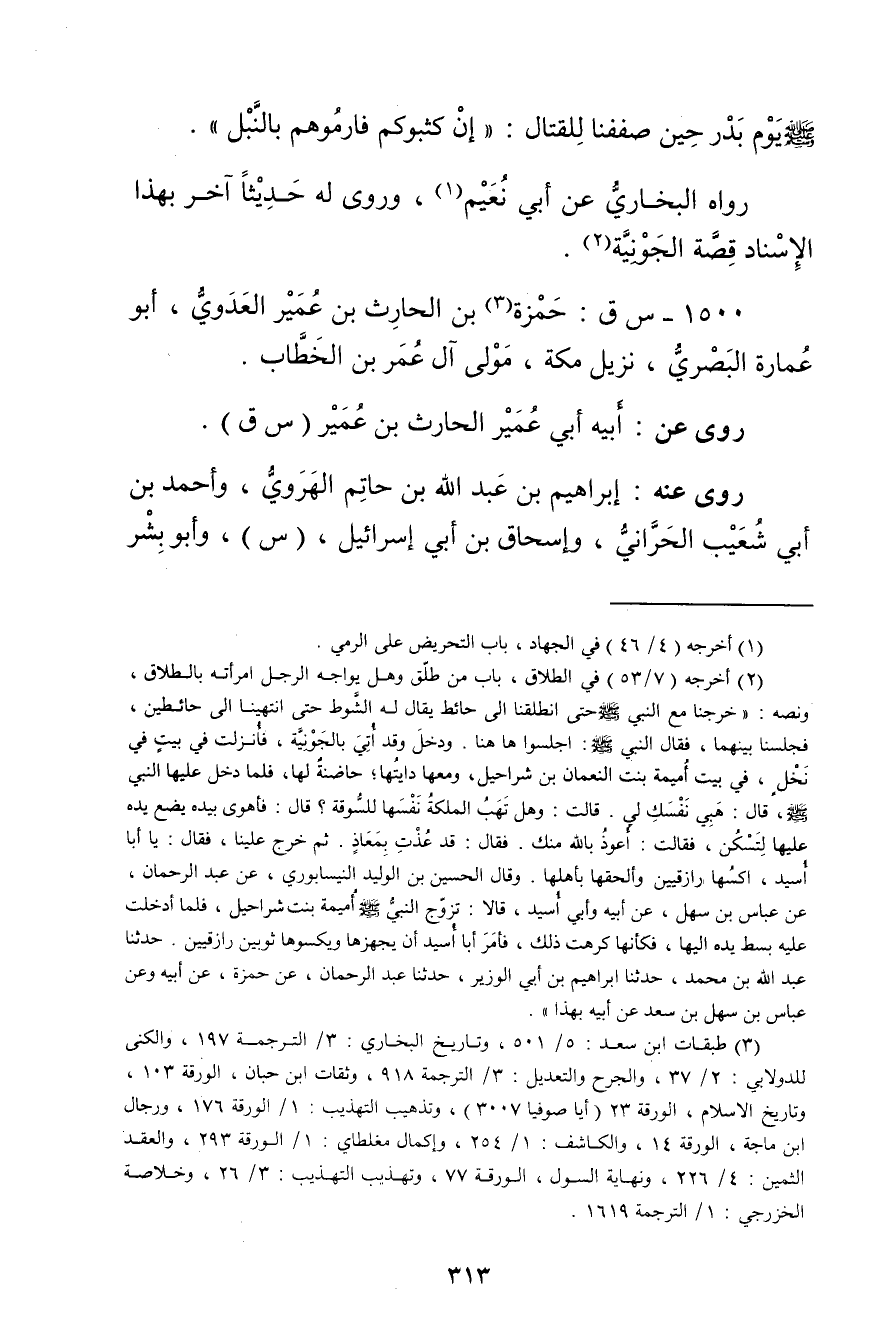 ﷺ يَوْم بَدْر حِين صففنا لِلقتال : « إنْ كثبوكم فارمُوهم بالنَّبْل » .
رواه البخـاريُّ عن أبي نُعَيْم(١) ، وروى له حَـدِيْثاً آخـر بهذا
الإِسْناد قِصَّة الجَوْنِيَّة(٢) .
١٥٠٠ ـ س ق : حَمْزة(٣) بن الحارِث بن عُمَيْر العَدَويُّ ، أبو
عُمارة البَصْريُّ ، نزيل مكة ، مَوْلى آل عُمَر بن الخَطَّاب .
روى عن : أَبيه أبي عُمَيْر الحارث بن عُمَيْر ( س ق ) .
روى عنه : إبراهيم بن عَبد الله بن حاتِم الهَرَويُّ ، وأحمد بن
أبي شُعَيْب الحَرَّانيُّ ، وإسحاق بن أبي إسرائيل ، ( س ) ، وأبو بِشْر
(١) أخرجه ( ٤/ ٤٦ ) في الجهاد ، باب التحريض على الرمي .
(٢) أخرجه ( ٥٣/٧ ) في الطلاق ، باب من طلّق وهـل يواجـه الرجـل امرأتـه بالـطلاق ،
ونصه : « خرجنا مع النبي ﷺ حتى انطلقنا الى حائط يقال لـه الشَّوط حتى انتهينـا الى حائـطين ،
فجلسنا بينهما ، فقال النبي ﷺ : اجلسوا ها هنا . ودخلَ وقد أُتِيَ بالجَوْنِيَّة ، فأُنـزلت في بيتٍ في
نَخْلٍ ، في بيت أُميمة بنت النعمان بن شراحيل، ومعها دايتُها؛ حاضنةٌ لها، فلما دخل عليها النبي
ﷺ، قال : هَبِي نَفْسَكِ لي . قالت : وهل تَهَبُ الملكةُ نَفْسَها للسُّوقة ؟ قال : فأهوى بيده يضع يده
عليها لِتَسْكُن ، فقالت : أعوذُ بالله منك . فقال : قد عُذْتِ بِمَعَاذٍ . ثم خرج علينا ، فقال : يا أبا
أُسيد ، اكسُها رازقيين وألحقها بأهلها . وقال الحسين بن الوليد النيسابوري ، عن عبد الرحمان ،
عن عباس بن سهل ، عن أبيه وأبي أُسيد ، قالا : تزوّج النبيُّ ﷺ أُميمة بنت شراحيل ، فلما أدخلت
عليه بسط يده اليها ، فكأنها كرهت ذلك ، فأمَرَ أبا أُسيد أن يجهزها ويكسوها ثوبين رازقيين . حدثنا
عبد الله بن محمد ، حدثنا ابراهيم بن أبي الوزير ، حدثنا عبد الرحمان ، عن حمزة ، عن أبيه وعن
عباس بن سهل بن سعد عن أبيه بهذا » .
(٣) طبقـات ابن سعـد : ٥/ ٥٠١ ، وتـاريخ البخـاري : ٣/ التـرجمـة ١٩٧ ، والكنى
للدولابي : ٢/ ٣٧ ، والجرح والتعديل : ٣/ الترجمة ٩١٨ ، وثقات ابن حبان ، الورقة ١٠٣ ،
وتاريخ الاسلام ، الورقة ٢٣ ( أيا صوفيا ٣٠٠٧ ) ، وتذهيب التهذيب : ١/ الورقة ١٧٦ ، ورجال
ابن ماجة ، الورقة ١٤ ، والكاشف : ١/ ٢٥٤ ، وإكمال مغلطاي : ١/ الـورقة ٢٩٣ ، والعقـد
الثمين : ٤/ ٢٢٦ ، ونهاية السول ، الورقـة ٧٧ ، وتهـذيب التهـذيب : ٣/ ٢٦ ، وخـلاصـة
الخزرجي : ١/ الترجمة ١٦١٩ .
٣١٣